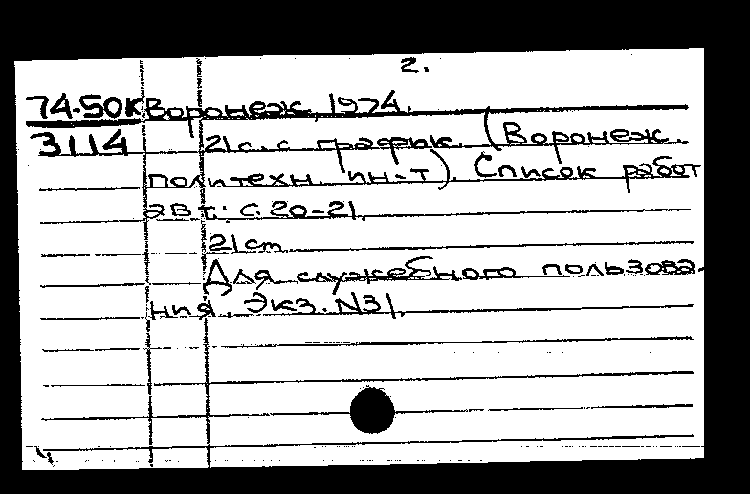 2.
74-50к Воронеж, 1974.
3114 21 с. с график. (Воронеж.
политехн. ин-т). Список работ
авт.: с. 20-21.
21 cm
Для служебного пользова-
ния. Экз. N31.